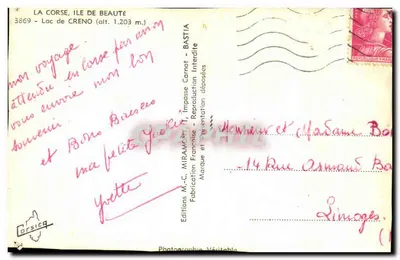 LA CORSE, ILE DE BEAUTÉ
3869 - Lac de CRENO (alt. 1.203 m.)
mon voyage.
attendu en Corse par avion
vous envoie mon bon
souvenir.
et Bons Baisers
ma petite
Yvette
Corsica
Editions M.-C. MIRAMONT, Impasse Carnot - BASTIA
Fabrication Française - Reproduction Interdite
Marque et Présentation déposées
Monsieur et Madame
14 Rue Armand
Limoges
Photographie Véritable